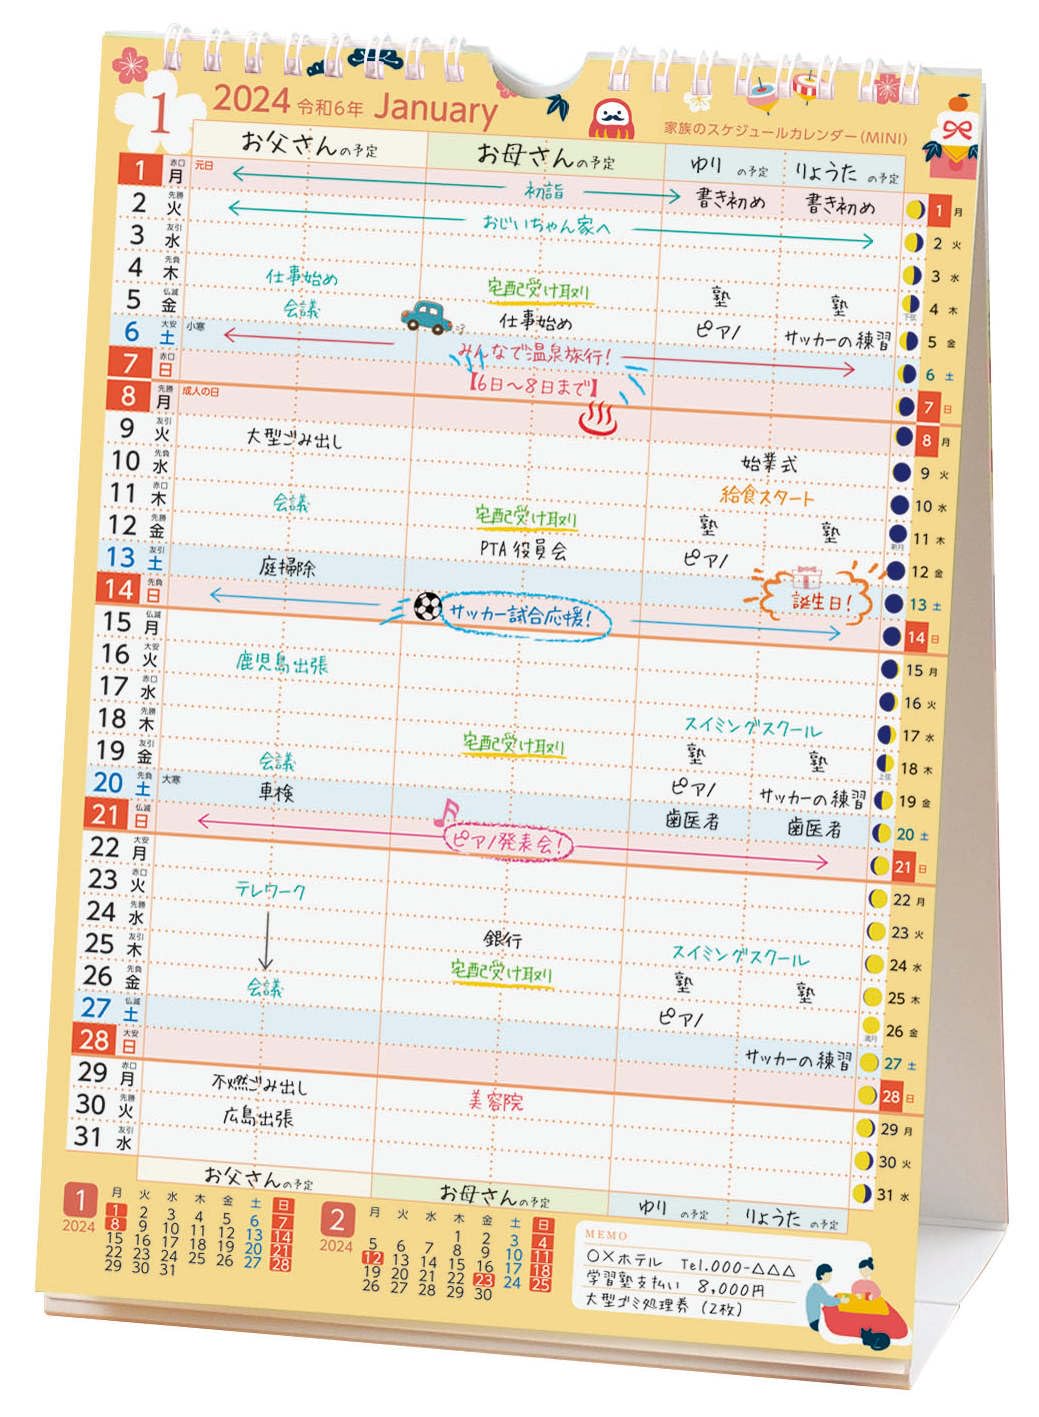 1
2024 令和6年 January
家族のスケジュールカレンダー(MINI)
お父さんの予定 お母さんの予定 ゆりの予定 りょうたの予定
1 月 赤口 元日 初詣 書き初め 書き初め 1 月
2 火 先勝 おじいちゃん家へ 2 火
3 水 友引 3 水
4 木 先負 仕事始め 宅配受け取り 塾 塾 下弦 4 木
5 金 仏滅 会議 仕事始め ピアノ サッカーの練習 5 金
6 土 大安 小寒 みんなで温泉旅行! 6 土
7 日 赤口 【6日〜8日まで】 7 日
8 月 先勝 成人の日 8 月
9 火 友引 大型ごみ出し 始業式 9 火
10 水 先負 給食スタート 10 水
11 木 赤口 会議 宅配受け取り 塾 塾 新月 11 木
12 金 先勝 PTA 役員会 ピアノ 12 金
13 土 友引 庭掃除 誕生日! 13 土
14 日 先負 サッカー試合応援! 14 日
15 月 仏滅 15 月
16 火 大安 鹿児島出張 16 火
17 水 赤口 スイミングスクール 17 水
18 木 先勝 宅配受け取り 塾 塾 上弦 18 木
19 金 友引 会議 ピアノ サッカーの練習 19 金
20 土 先負 大寒 車検 歯医者 歯医者 20 土
21 日 仏滅 ピアノ発表会! 21 日
22 月 大安 22 月
23 火 赤口 テレワーク 23 火
24 水 先勝 スイミングスクール 24 水
25 木 友引 銀行 塾 塾 25 木
26 金 先負 会議 宅配受け取り ピアノ 満月 26 金
27 土 仏滅 サッカーの練習 27 土
28 日 大安 28 日
29 月 赤口 不燃ごみ出し 美容院 29 月
30 火 先勝 広島出張 30 火
31 水 友引 31 水
お父さんの予定 お母さんの予定 ゆりの予定 りょうたの予定
1 2024
月 火 水 木 金 土 日
1 2 3 4 5 6 7
8 9 10 11 12 13 14
15 16 17 18 19 20 21
22 23 24 25 26 27 28
29 30 31
2 2024
月 火 水 木 金 土 日
1 2 3 4
5 6 7 8 9 10 11
12 13 14 15 16 17 18
19 20 21 22 23 24 25
26 27 28 29 30
MEMO
○×ホテル Tel.000-△△△
学習塾支払い 8,000円
大型ゴミ処理券(2枚)